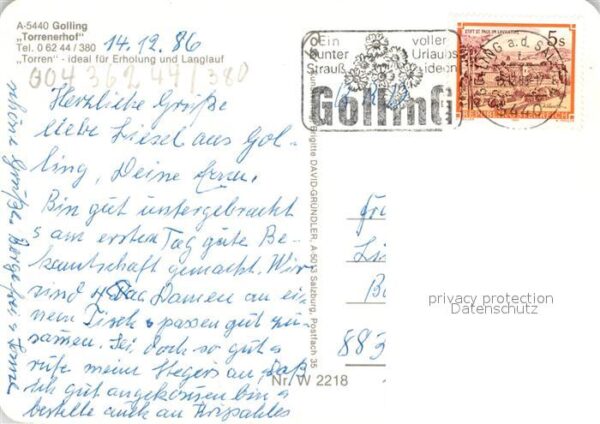 A-5440 Golling
„Torrenerhof"
Tel. 0 62 44 / 380
„Torren" - ideal für Erholung und Langlauf
14.12.86
004 36244/380
Herzliche Grüße
liebe Liesel aus Gol-
ling, Deine
Bin gut untergebracht
s am ersten Tag gute Be-
kanntschaft gemacht. Wir
sind 4 Damen an ei-
nem Tisch s passen gut zu-
samen. Sei doch so gut s
rufe meine an, daß
ich gut angekommen bin s
bestelle auch an
schöne Grüße. s Sonne
o Ein voller
bunter Urlaubs
Strauß ideen
Golling
STIFT ST. PAUL IM LAVANTTAL
5s
REPUBLIK ÖSTERREICH
GOLLING a.d. SALZ
5440
Brigitte DAVID-GRÜNDLER, A-5013 Salzburg, Postfach 35
Nr. W 2218
Fr
Li
Ba
883
privacy protection
Datenschutz